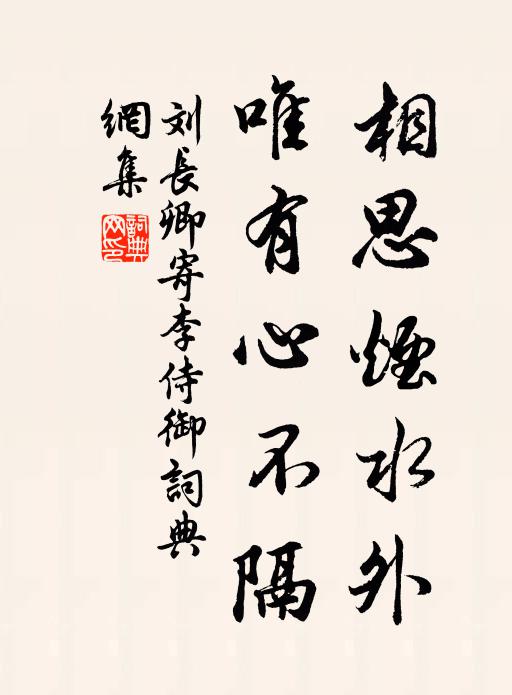 相思煙水外
唯有心不隔
刘長卿寄李侍御詞典
網集
詞典
网印